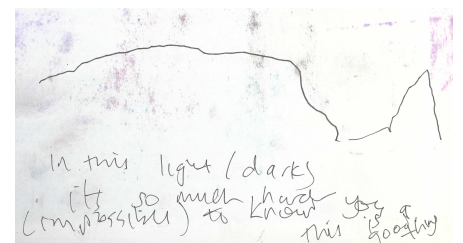 In this light (dark)
its so much hard
(impossible) to know you
this is a